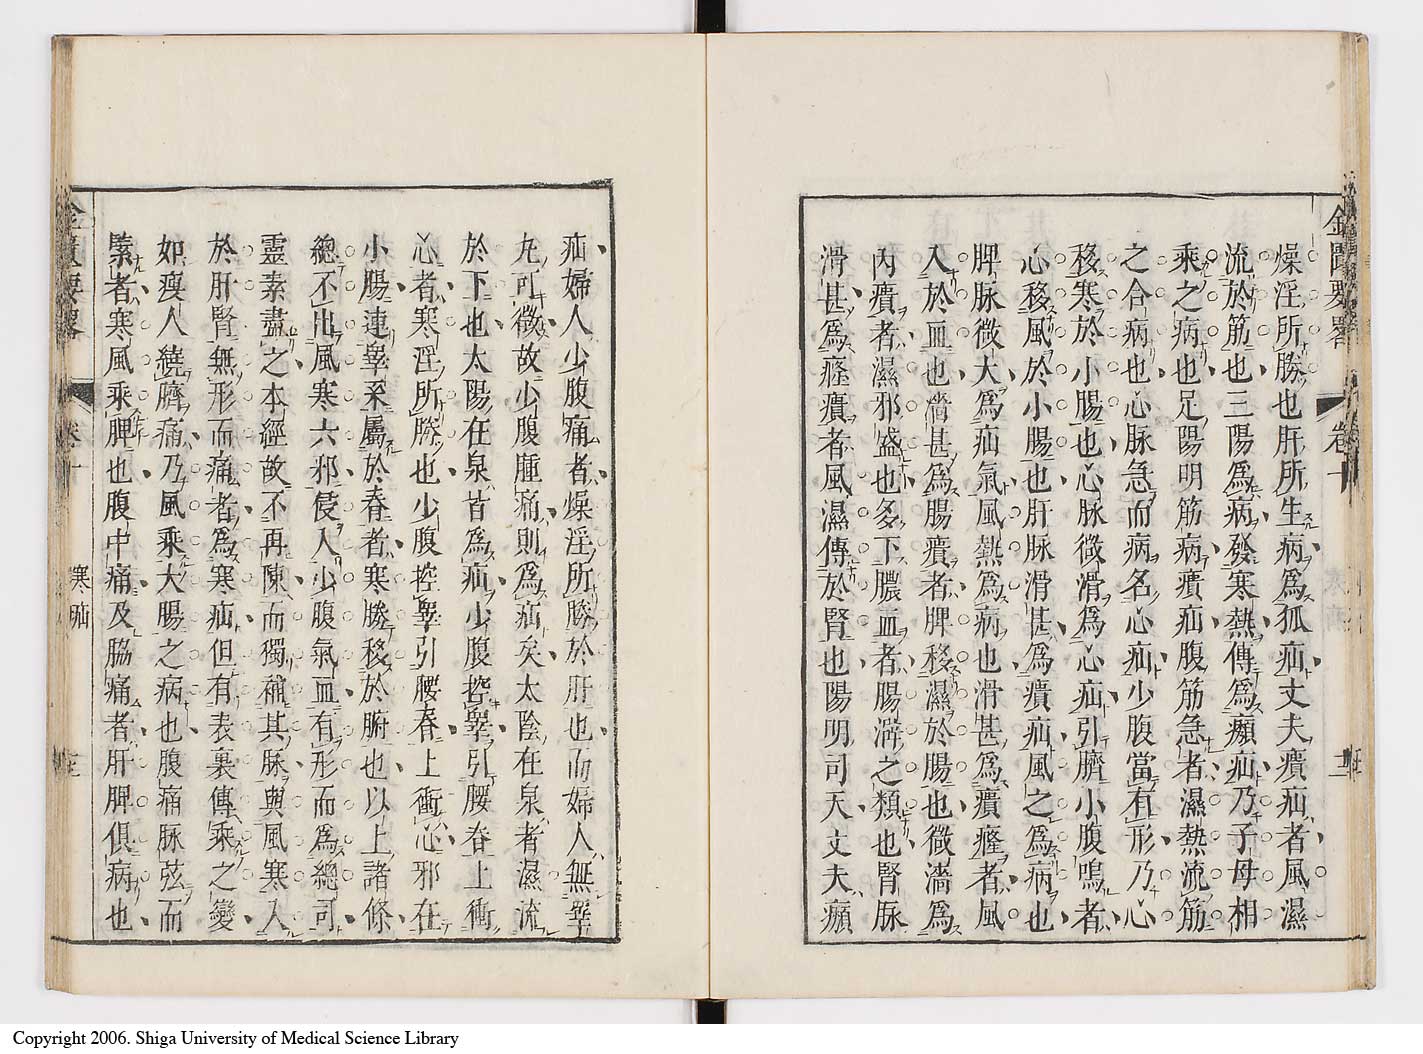 金匱要畧
卷十
燥淫所勝也肝所生病爲狐疝丈夫㿉疝者風濕
流於筋也三陽爲病發寒熱傳爲癩疝乃子母相
乘之病也足陽明筋病㿉疝腹筋急者濕熱流筋
之合病也心脉急而病名心疝少腹當有形乃心
移寒於小腸也心脉微滑爲心疝引臍小腹鳴者
心移風於小腸也肝脉滑甚爲㿉疝風之爲病也
脾脉微大爲疝氣風熱爲病也滑甚爲㿉癃者風
入於血也濇甚爲腸㿉者脾移濕於腸也微濇爲
內㿉者濕邪盛也多下膿血者腸澼之類也腎脉
滑甚爲癃㿉者風濕傳於腎也陽明司天丈夫癩
疝婦人少腹痛者燥淫所勝於肝也而婦人無睾
丸可徵故少腹腫痛則爲疝矣太陰在泉者濕流
於下也太陽在泉皆爲疝少腹控睾引腰脊上衝
心者寒淫所勝也少腹控睾引腰脊上衝心邪在
小腸連睾系屬於脊者寒勝移於腑也以上諸條
總不出風寒六邪侵入少腹氣血有形而爲總司
靈素盡之本經故不再陳而獨補其脉與風寒入
於肝腎無形而痛者爲寒疝但有表裏傳乘之變
如瘦人繞臍痛乃風乘大腸之病也腹痛脉弦而
緊者寒風乘脾也腹中痛及脇痛者肝脾俱病也
金匱要畧
卷十
寒疝